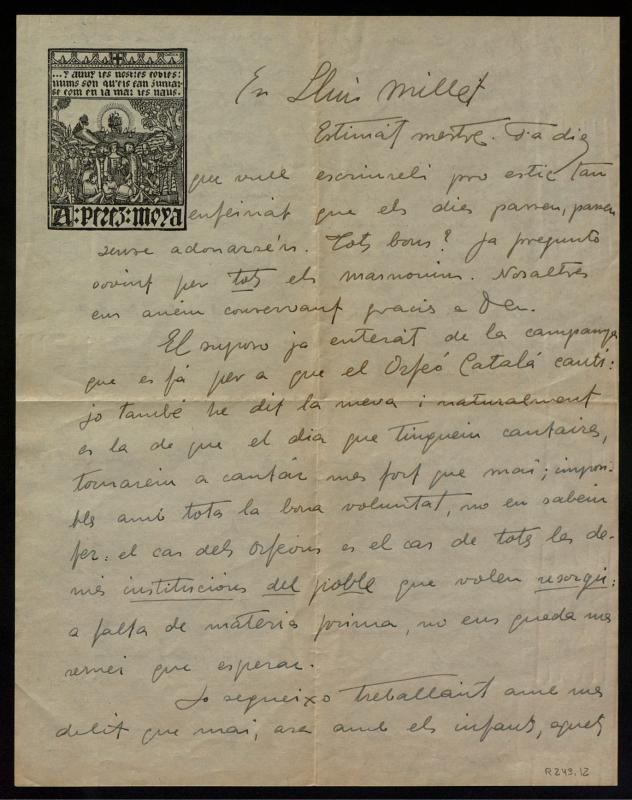 ... y aunt les nostres cobles:
nums son qu'els can juntar-
se com en la mar les naus.
A: perez: moya
En Lluis Millet
Estimat mestre. Fa dies
que vull escriureli pro estic tan
enfeinat que els dies passen, passen
sense adonarse'n. Tots bons? Ja pregunto
sovint per tots els masnovins. Nosaltres
ens anem conservant gracis a Deu.
El suposo ja enterat de la campanya
que es fá per a que el Orfeó Catalá canti:
jo també he dit la meva i naturalment
es la de que el dia que tinguem cantaires,
tornarem a cantár mes fort que mai; imposi-
ble amb tota la bona voluntat, no en sabem
fer: el cas dels Orfeons es el cas de totes les de-
mes institucions del poble que volen resorgir:
a falta de materia prima, no ens queda mes
remei que esperar.
Jo segueixo treballant amb mes
delit que mai, ara amb els infants, aquets
R 249.12